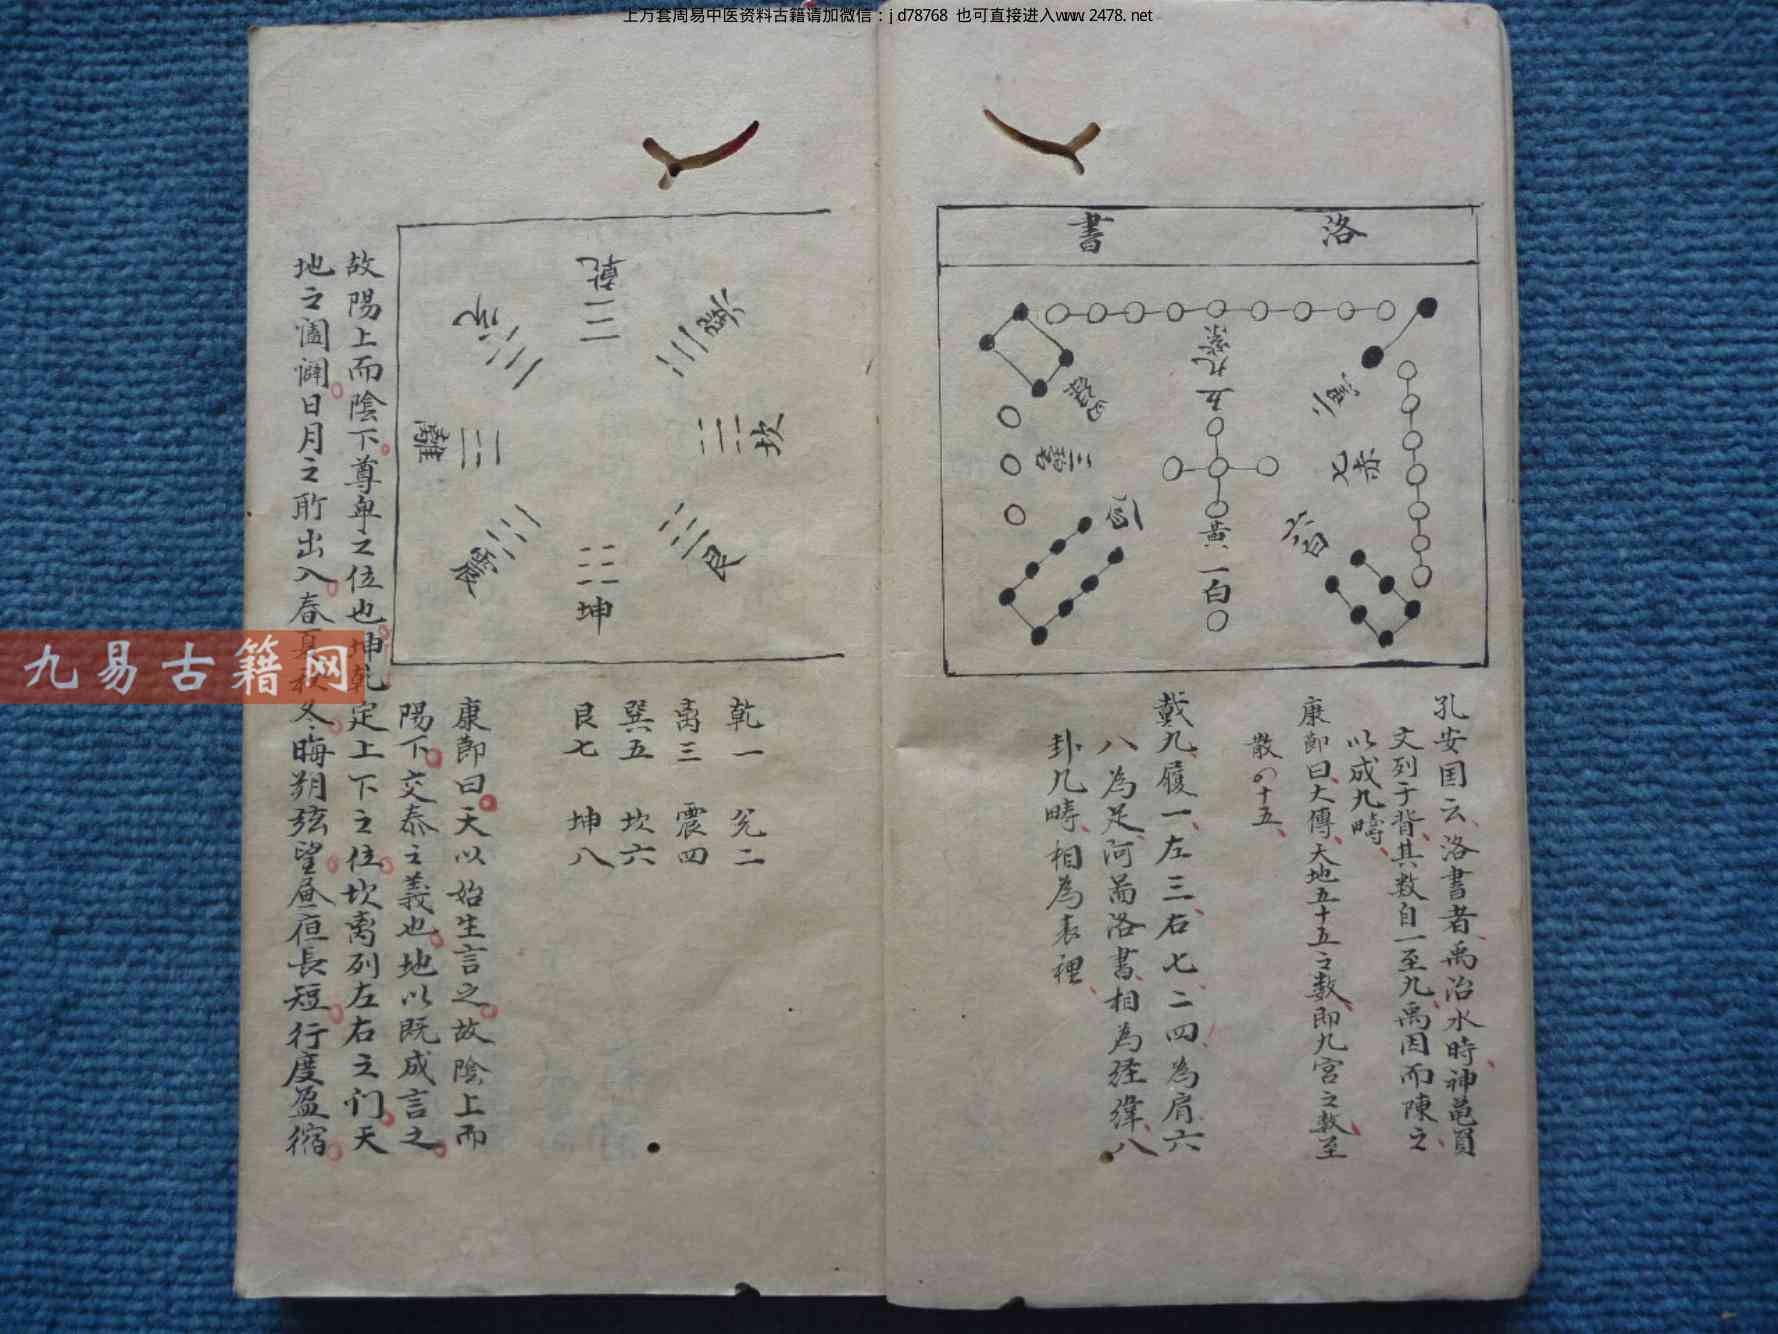 上万套周易中医资料古籍请加微信：jd78768 也可直接进入www.2478.net
洛書
九紫
五
四綠
二黑
三碧
七赤
八
六白
黃
一白
孔安国云洛書者禹治水時神黽負
文列于背其数自一至九禹因而陳之
以成九疇
康節曰大傳天地五十五之数即九宮之数至
散の十五
戴九履一左三右七二四為肩六
八為足河啚洛書相為経緯八
卦九疇相為表裡
乾
兌
巽
離
坎
震
艮
坤
乾一 兊二
离三 震四
巽五 坎六
艮七 坤八
康節曰天以始生言之故陰上而
陽下交泰之義也地以既成言之
故陽上而陰下尊卑之位也坤乾定上下之位坎离列左右之们天
地之闔闢日月之所出入春夏秋冬晦朔弦望昼夜長短行度盈縮
九易古籍网